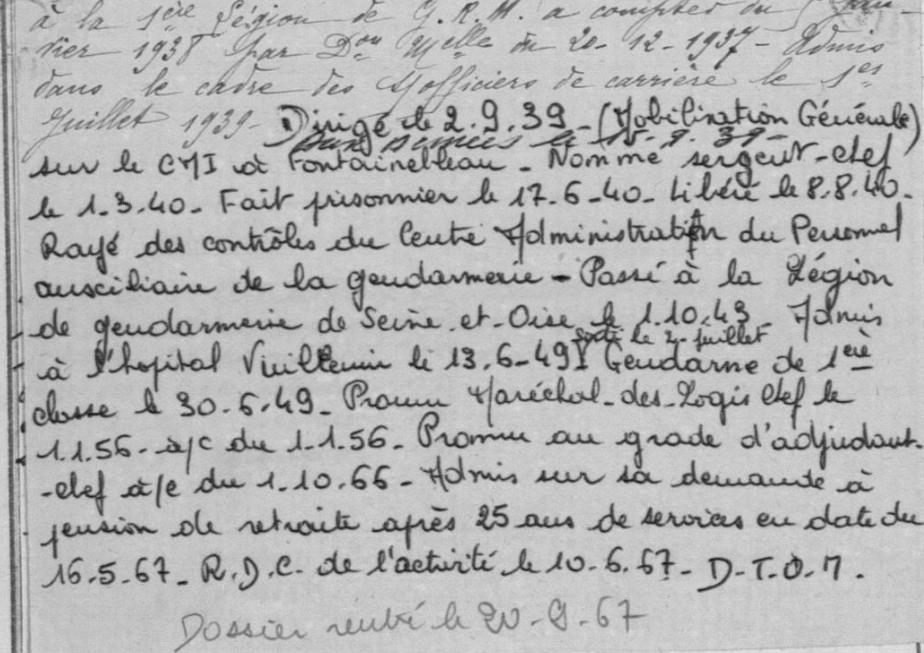 à la 1ère Légion de G.R.M. a compter du Jan-
vier 1938 par Don Melle du 20-12-1937- Admis
dans le cadre des S/officiers de carrière le 1er
Juillet 1939- Dirigé le 2.9.39-(Mobilisation Générale)
le 15-9.39-
sur le CMI à Fontainebleau - Nommé sergent-chef
le 1-3.40- Fait prisonnier le 17.6-40- Libéré le 8.8.40-
Rayé des contrôles du Centre Administratif du Personnel
auxiliaire de la gendarmerie - Passé à la Légion
de gendarmerie de Seine-et-Oise le 1.10.43- Admis
Sorti le 2-juillet
à l'hopital Vuillemin le 13.6-49 Gendarme de 1ère
classe le 30-6.49- Promu Maréchal-des-Logis Chef le
1.1.56- à/c du 1-1.56- Promu au grade d'adjudant-
-chef à/c du 1-10.66- Admis sur sa demande à
pension de retraite après 25 ans de services en date du
16.5-67- R.D.C. de l'activité le 10-6.67- D-T.O.M.
Dossier rentré le 20-9-67